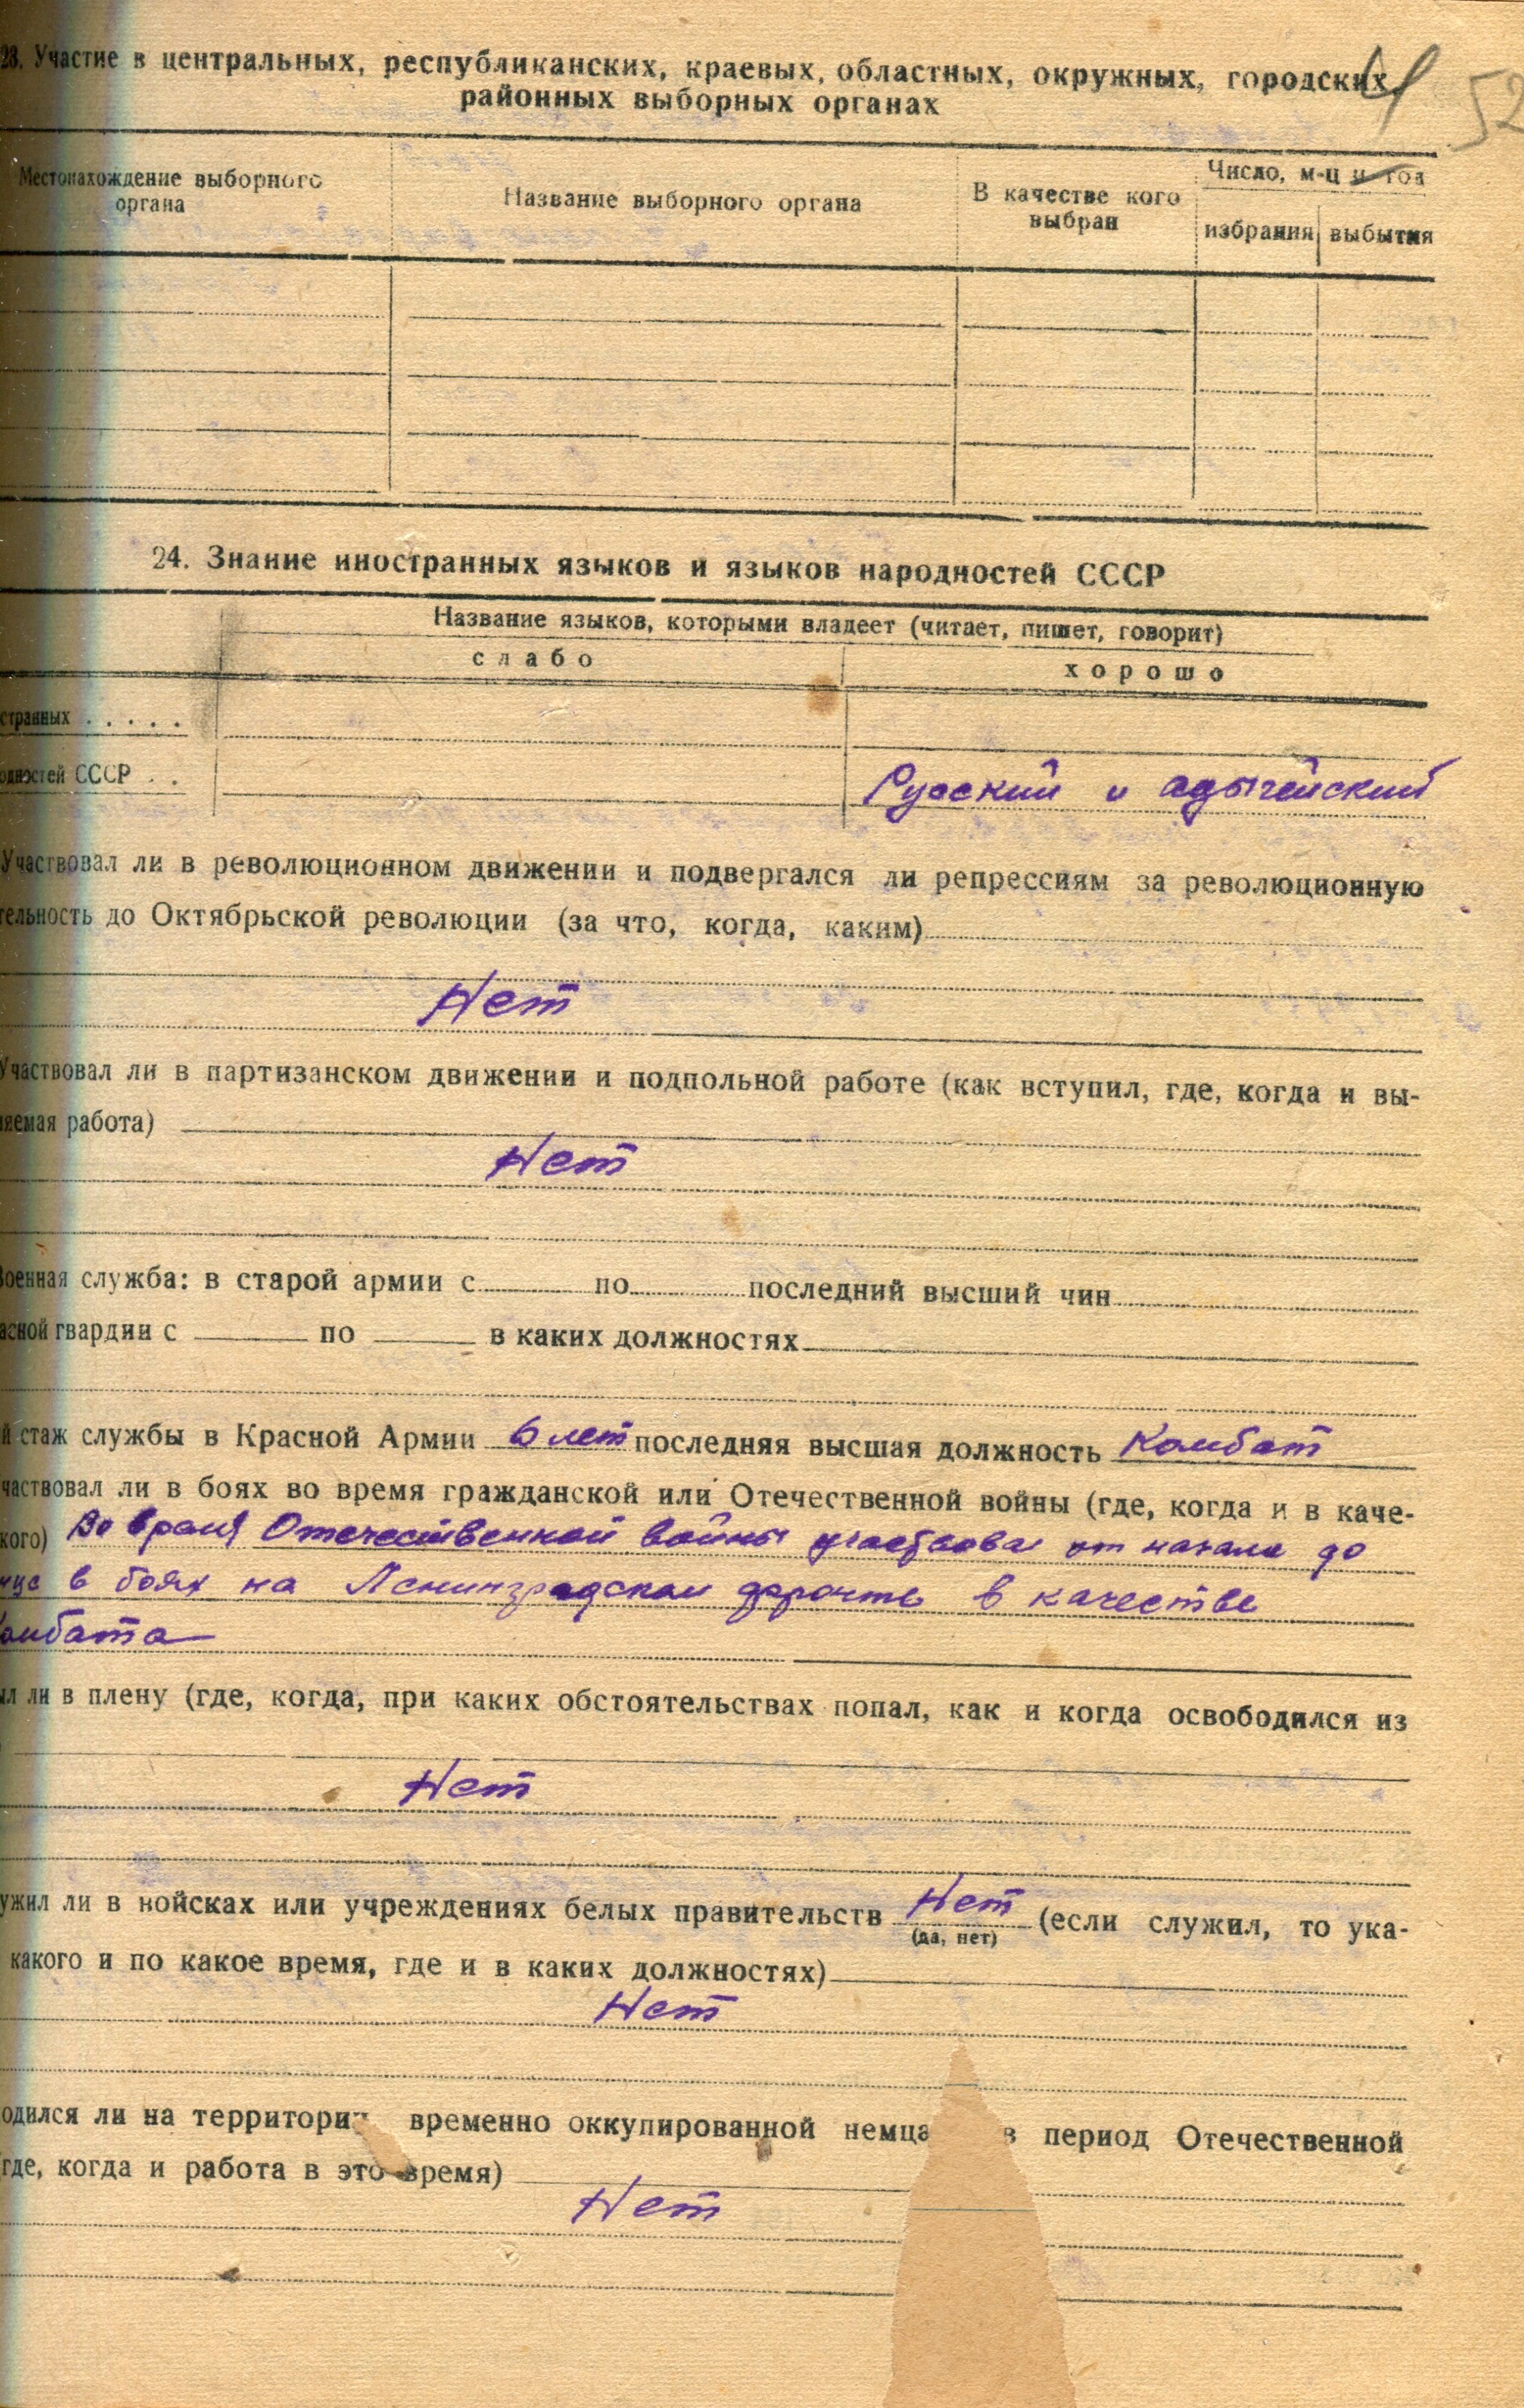 23. Участие в центральных, республиканских, краевых, областных, окружных, городских,
районных выборных органах
52
Местонахождение выборного органа
Название выборного органа
В качестве кого выбран
Число, м-ц и год
избрания
выбытия
24. Знание иностранных языков и языков народностей СССР
Название языков, которыми владеет (читает, пишет, говорит)
слабо
хорошо
странных . . . . .
одностей СССР . .
Русский и адыгейский
Участвовал ли в революционном движении и подвергался ли репрессиям за революционную
тельность до Октябрьской революции (за что, когда, каким)
Нет
Участвовал ли в партизанском движении и подпольной работе (как вступил, где, когда и вы-
няемая работа)
Нет
Военная служба: в старой армии с по последний высший чин
асной гвардии с по в каких должностях
й стаж службы в Красной Армии 6 лет последняя высшая должность Комбат
частвовал ли в боях во время гражданской или Отечественной войны (где, когда и в каче-
кого) Во время Отечественной войны участвовал от начала до
нца в боях на Ленинградском фронте в качестве
Комбата
ыл ли в плену (где, когда, при каких обстоятельствах попал, как и когда освободился из
Нет
ужил ли в войсках или учреждениях белых правительств Нет (если служил, то ука-
(да, нет)
какого и по какое время, где и в каких должностях)
Нет
одился ли на территории временно оккупированной немца в период Отечественной
где, когда и работа в это время)
Нет